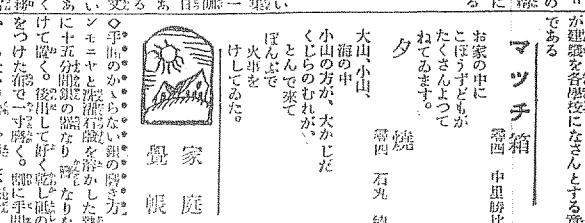 が建議を各學校になさんとする
である
マッチ箱
尋四 中里勝
お家の中に
こぼうずどもが
たくさんよつて
ねてゐます。
夕燒
尋四 石丸
大山、小山、
海の中
小山の方が、大かじだ
くじらのむれが、
とんで來て
ぽんぷで
火事を
けしてゐた。
家庭
覺帳
◇手間のかゝらない銀の磨き方
ンモニヤと洗濯石鹼を溶かした
に十五分間銀の器なり
けて置く。後出して好く乾し
をつけた布で一寸磨く。